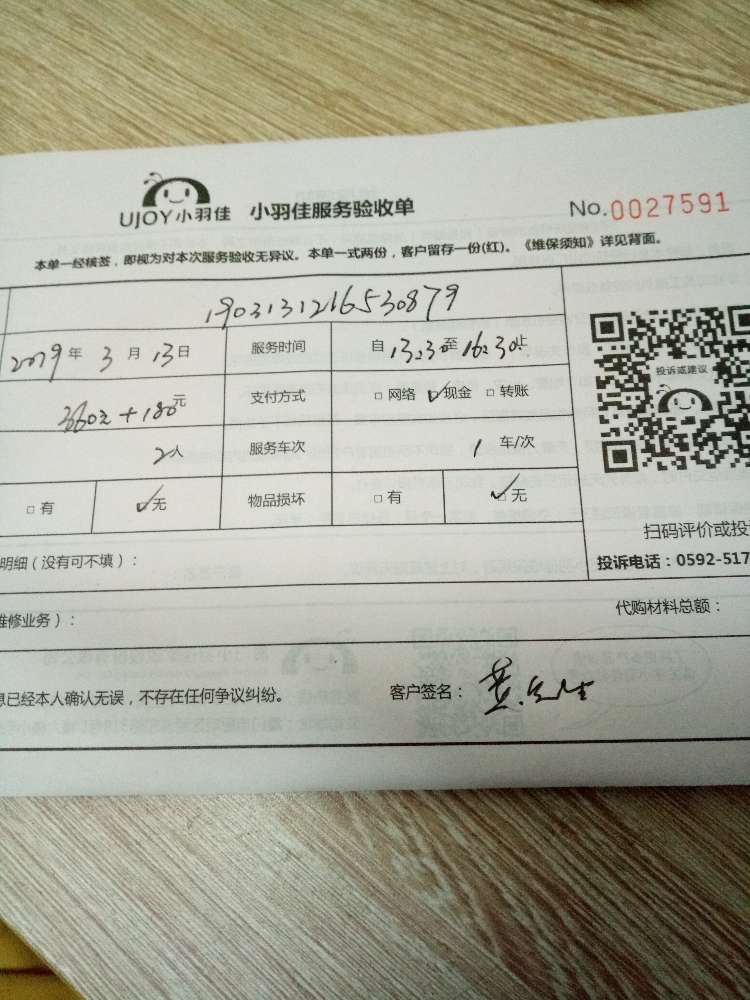 UJOY小羽佳 小羽佳服务验收单 No.0027591
本单一经核签，即视为对本次服务验收无异议。本单一式两份，客户留存一份(红)。《维保须知》详见背面。
1903131216530879
2019年3月13日 服务时间 自13:30至16:30止
360元+180元 支付方式 □网络 ☑现金 □转账
2人 服务车次 1车/次
□有 ☑无 物品损坏 □有 ☑无
投诉或建议
明细（没有可不填）：
扫码评价或投
投诉电话：0592-517
维修业务）： 代购材料总额：
息已经本人确认无误，不存在任何争议纠纷。 客户签名：黄先生